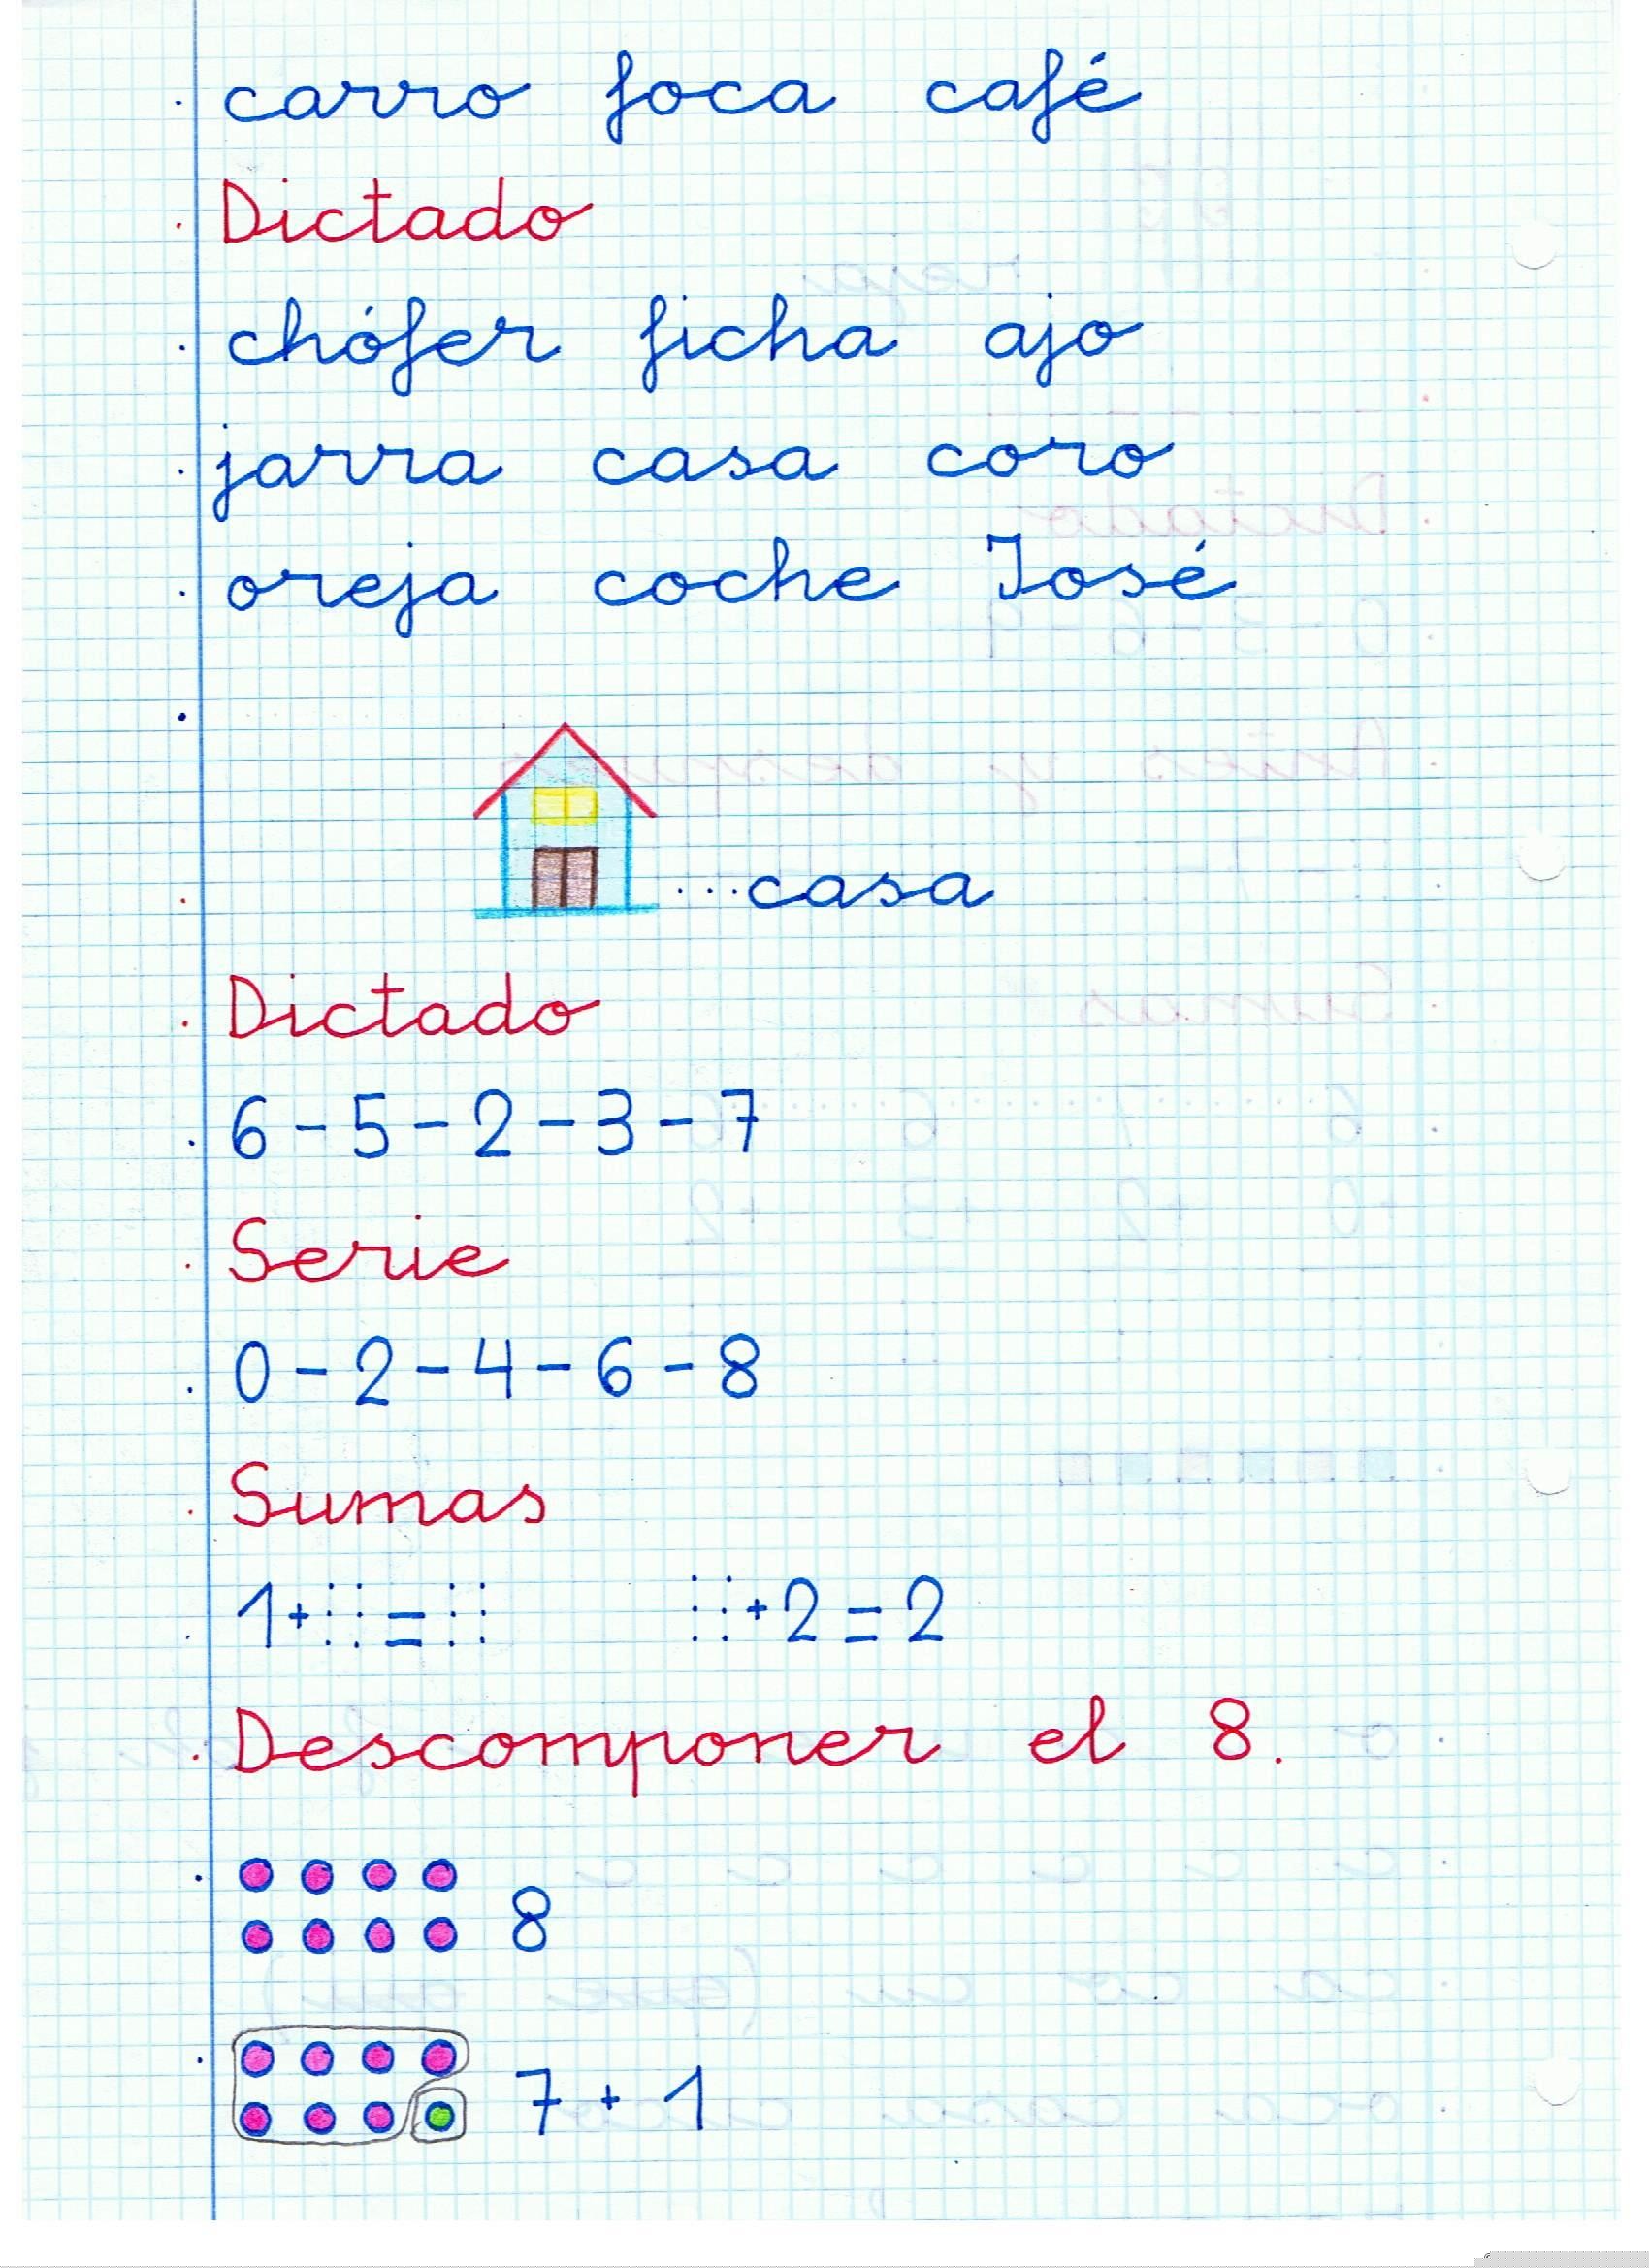 carro foca café
Dictado
chófer ficha ajo
jarra casa coro
oreja coche José
...casa
Dictado
6-5-2-3-7
Serie
0-2-4-6-8
Sumas
1+::=:: ::+2=2
Descomponer el 8.
8
7+1